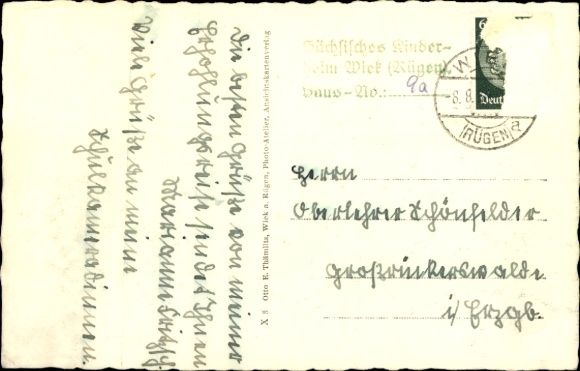 Die besten Grüße von meiner
Erhohlungsreise sendet Ihnen
Marianne Fritzsch.
Viele Grüße an meine
Schulkameradinnen.
X 5 Otto E. Thämlitz, Wiek a. Rügen, Photo-Atelier, Ansichtskartenverlag
Sächsisches Kinder-
heim Wiek (Rügen),
Haus-No.: 9a
8.8.
(RÜGEN)
Deut
Herrn
Oberlehrer Schönfelder
Großrückerswalde
i/ Erzgb.